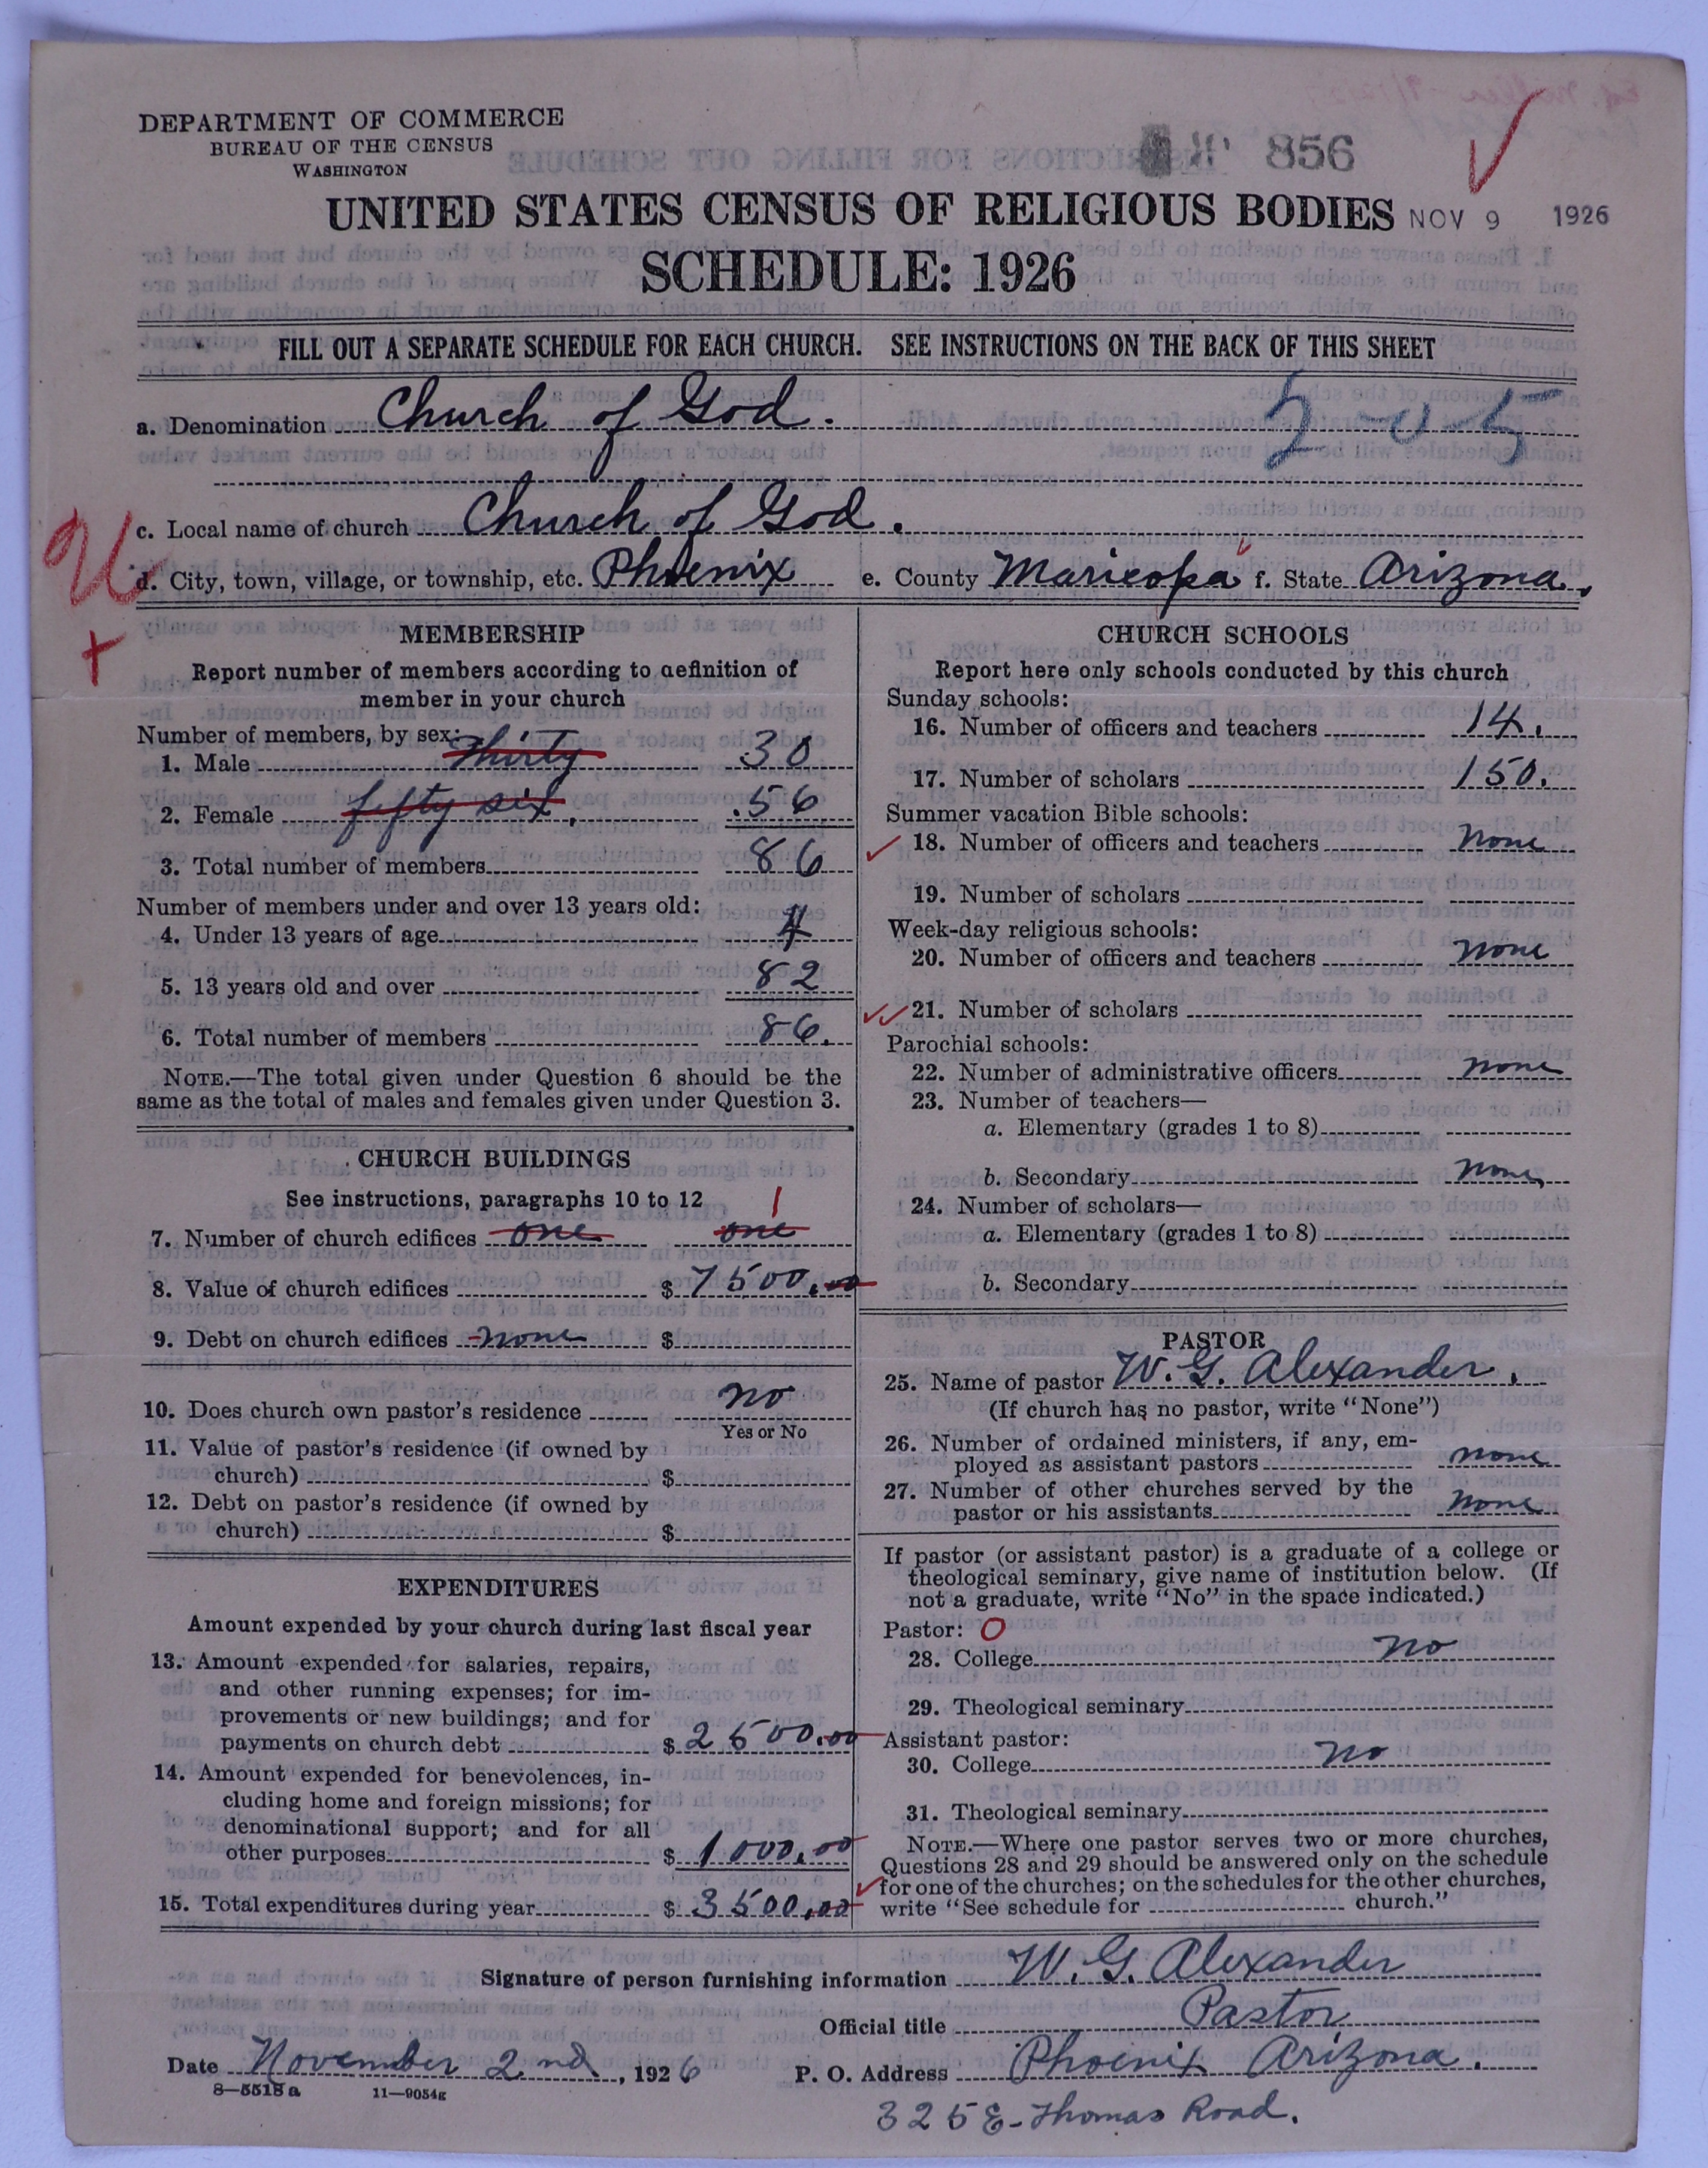 DEPARTMENT OF COMMERCE
BUREAU OF THE CENSUS
WASHINGTON
856
UNITED STATES CENSUS OF RELIGIOUS BODIES
NOV 9 1926
SCHEDULE: 1926
FILL OUT A SEPARATE SCHEDULE FOR EACH CHURCH. SEE INSTRUCTIONS ON THE BACK OF THIS SHEET
a. Denomination Church of God.
2-0-5
c. Local name of church Church of God.
d. City, town, village, or township, etc. Phoenix e. County Maricopa f. State Arizona.
MEMBERSHIP
Report number of members according to definition of
member in your church
Number of members, by sex:
1. Male Thirty 30
2. Female fifty six, 56
3. Total number of members 86
Number of members under and over 13 years old:
4. Under 13 years of age 4
5. 13 years old and over 82
6. Total number of members 86.
NOTE.—The total given under Question 6 should be the
same as the total of males and females given under Question 3.
CHURCH BUILDINGS
See instructions, paragraphs 10 to 12
1
7. Number of church edifices one one
8. Value of church edifices $ 7500.00
9. Debt on church edifices none $
10. Does church own pastor's residence no
Yes or No
11. Value of pastor's residence (if owned by
church) $
12. Debt on pastor's residence (if owned by
church) $
EXPENDITURES
Amount expended by your church during last fiscal year
13. Amount expended for salaries, repairs,
and other running expenses; for im-
provements or new buildings; and for
payments on church debt $ 2500.00
14. Amount expended for benevolences, in-
cluding home and foreign missions; for
denominational support; and for all
other purposes $ 1000.00
15. Total expenditures during year $ 3500.00
CHURCH SCHOOLS
Report here only schools conducted by this church
Sunday schools:
16. Number of officers and teachers 14.
17. Number of scholars 150.
Summer vacation Bible schools:
18. Number of officers and teachers none
19. Number of scholars
Week-day religious schools:
20. Number of officers and teachers none
21. Number of scholars
Parochial schools:
22. Number of administrative officers none
23. Number of teachers—
a. Elementary (grades 1 to 8)
b. Secondary none
24. Number of scholars—
a. Elementary (grades 1 to 8)
b. Secondary
PASTOR
25. Name of pastor W. G. Alexander.
(If church has no pastor, write "None")
26. Number of ordained ministers, if any, em-
ployed as assistant pastors none
27. Number of other churches served by the
pastor or his assistants none
If pastor (or assistant pastor) is a graduate of a college or
theological seminary, give name of institution below. (If
not a graduate, write "No" in the space indicated.)
Pastor: O
28. College no
29. Theological seminary
Assistant pastor:
30. College no
31. Theological seminary
NOTE.—Where one pastor serves two or more churches,
Questions 28 and 29 should be answered only on the schedule
for one of the churches; on the schedules for the other churches,
write "See schedule for church."
Signature of person furnishing information W. G. Alexander
Official title Pastor
Date November 2nd, 1926 P. O. Address Phoenix Arizona.
8—5518a 11—9054g
325 E. Thomas Road.